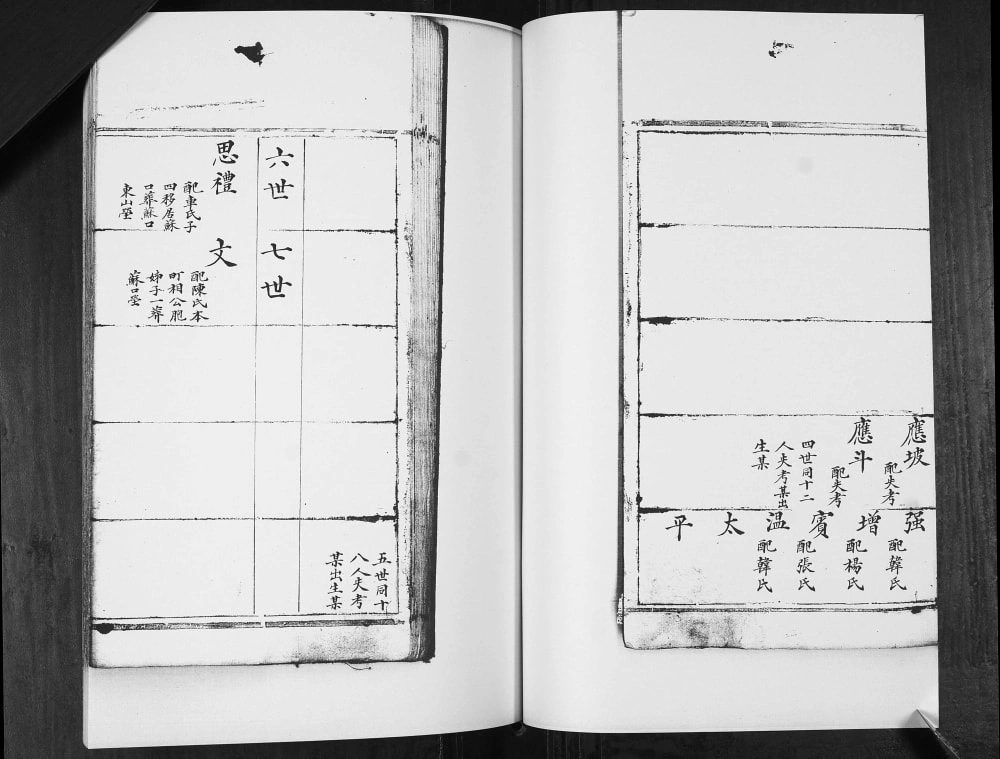 應坡
配失考
應斗
配失考
四世同十二
人失考某出
生某
强
配韓氏
增
配楊氏
賓
配張氏
温
配韓氏
太
平
五世同十
八人失考
某出生某
六世
七世
思禮
配車氏子
四移居蘇
口葬蘇口
東山塋
文
配陳氏本
町相公胞
姊子一葬
蘇口塋